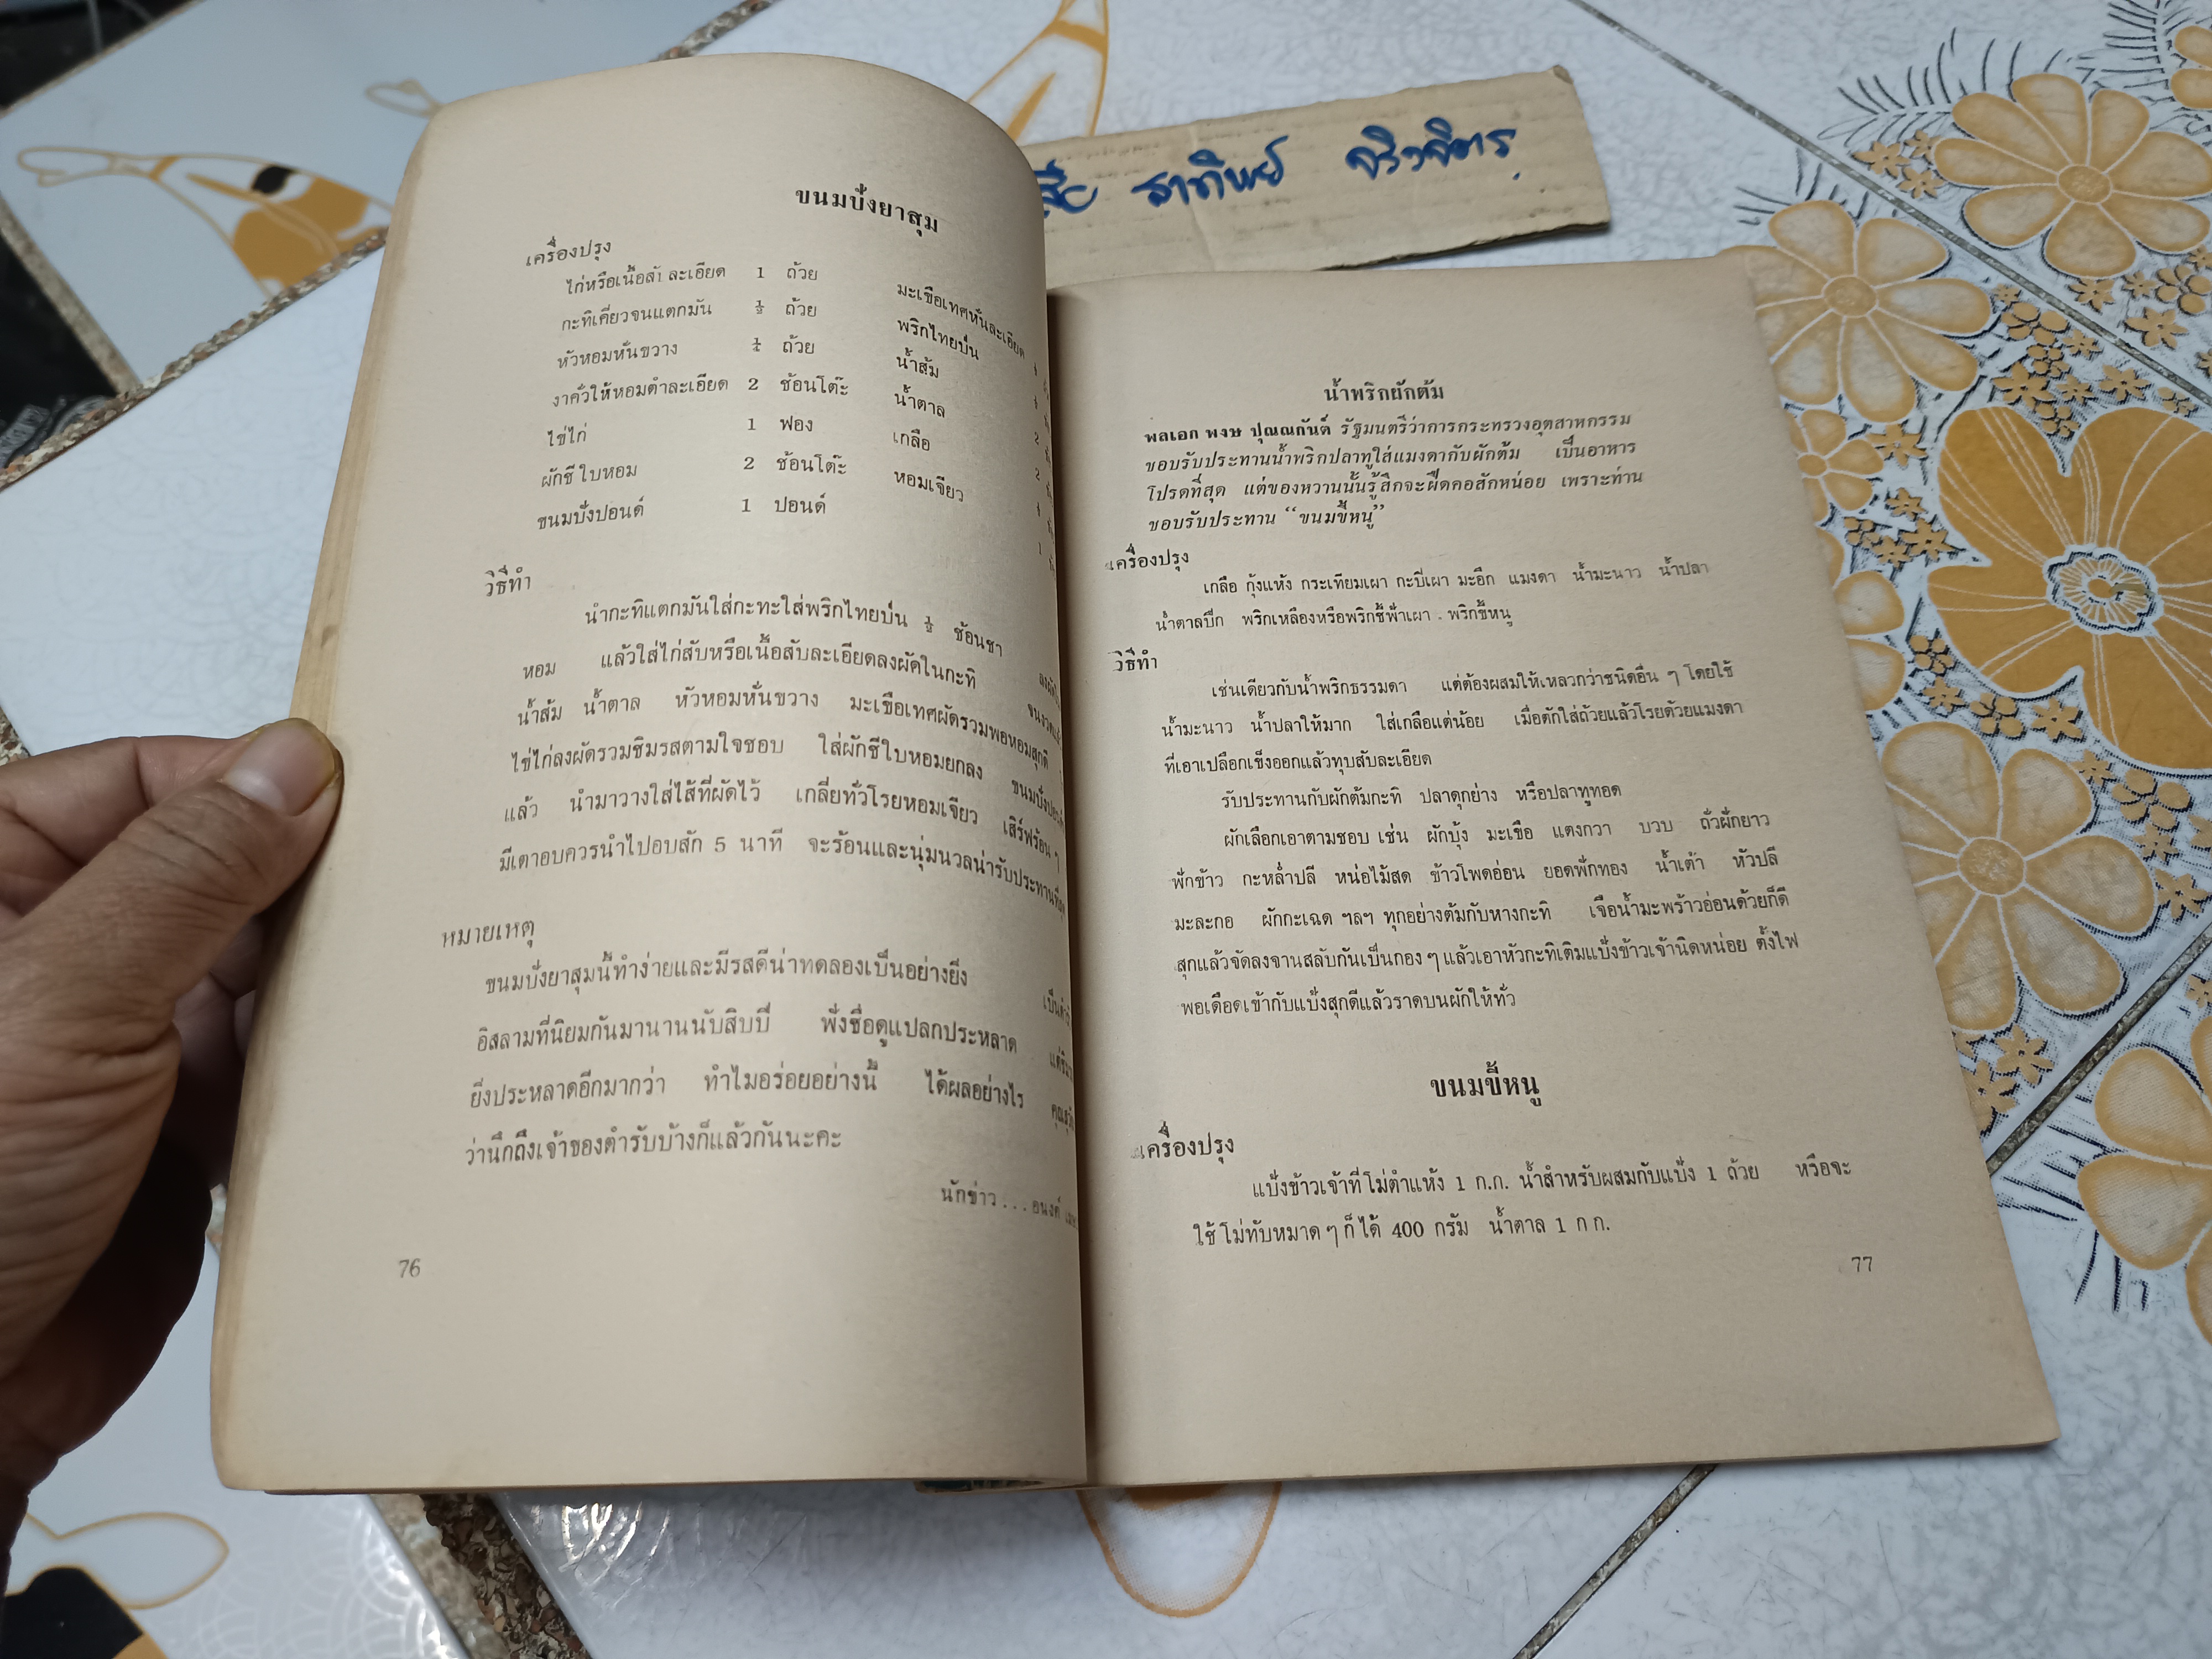 ธาทิพย์
ขนมปั้งยาสุม
เครื่องปรุง
ไก่หรือเนื้อสำ ละเอียด 1 ถ้วย มะเขือเทศหั่นละเอียด
กะทิเคี่ยวจนแตกมัน ½ ถ้วย พริกไทยป่น
หัวหอมหั่นขวาง ¼ ถ้วย น้ำส้ม
งาคั่วให้หอมตำละเอียด 2 ช้อนโต๊ะ น้ำตาล
ไข่ไก่ 1 ฟอง เกลือ
ผักชี ใบหอม 2 ช้อนโต๊ะ หอมเจียว
ขนมปังปอนด์ 1 ปอนด์
วิธีทำ
นำกะทิแตกมันใส่กะทะใส่พริกไทยป่น ½ ช้อนชา
หอม แล้วใส่ไก่สับหรือเนื้อสับละเอียดลงผัดในกะทิ
น้ำส้ม น้ำตาล หัวหอมหั่นขวาง มะเขือเทศผัดรวมพอหอมสุกดี
ไข่ไก่ลงผัดรวมชิมรสตามใจชอบ ใส่ผักชีใบหอมยกลง
แล้ว นำมาวางใส่ไส้ที่ผัดไว้ เกลี่ยทั่วโรยหอมเจียว เสิร์ฟร้อน ๆ
มีเตาอบควรนำไปอบสัก 5 นาที จะร้อนและนุ่มนวลน่ารับประทาน
หมายเหตุ
ขนมปังยาสุมนี้ทำง่ายและมีรสดีน่าทดลองเป็นอย่างยิ่ง
อิสลามที่นิยมกันมานานนับสิบปี ฟังชื่อดูแปลกประหลาด
ยิ่งประหลาดอีกมากว่า ทำไมอร่อยอย่างนี้ ได้ผลอย่างไร
ว่านึกถึงเจ้าของตำรับบ้างก็แล้วกันนะคะ
นักข่าว ... อนงค์
76
น้ำพริกผักต้ม
พลเอก พงษ ปุณณกันต์ รัฐมนตรีว่าการกระทรวงอุตสาหกรรม
ชอบรับประทานน้ำพริกปลาทูใส่แมงดากับผักต้ม เป็นอาหาร
โปรดที่สุด แต่ของหวานนั้นรู้สึกจะฝืดคอสักหน่อย เพราะท่าน
ชอบรับประทาน “ขนมขี้หนู”
เครื่องปรุง
เกลือ กุ้งแห้ง กระเทียมเผา กะปิเผา มะอึก แมงดา น้ำมะนาว น้ำปลา
น้ำตาลปึก พริกเหลืองหรือพริกชี้ฟ้าเผา . พริกขี้หนู
วิธีทำ
เช่นเดียวกับน้ำพริกธรรมดา แต่ต้องผสมให้เหลวกว่าชนิดอื่น ๆ โดยใช้
น้ำมะนาว น้ำปลาให้มาก ใส่เกลือแต่น้อย เมื่อตักใส่ถ้วยแล้วโรยด้วยแมงดา
ที่เอาเปลือกแข็งออกแล้วทุบสับละเอียด
รับประทานกับผักต้มกะทิ ปลาดุกย่าง หรือปลาทูทอด
ผักเลือกเอาตามชอบ เช่น ผักบุ้ง มะเขือ แตงกวา บวบ ถั่วฝักยาว
ฟักข้าว กะหล่ำปลี หน่อไม้สด ข้าวโพดอ่อน ยอดฟักทอง น้ำเต้า หัวปลี
มะละกอ ผักกะเฉด ฯลฯ ทุกอย่างต้มกับหางกะทิ เจือน้ำมะพร้าวอ่อนด้วยก็ดี
สุกแล้วจัดลงจานสลับกันเป็นกอง ๆ แล้วเอาหัวกะทิเติมแป้งข้าวเจ้านิดหน่อย ตั้งไฟ
พอเดือดเข้ากับแป้งสุกดีแล้วราดบนผักให้ทั่ว
ขนมขี้หนู
เครื่องปรุง
แป้งข้าวเจ้าที่โม่ตำแห้ง 1 ก.ก. น้ำสำหรับผสมกับแป้ง 1 ถ้วย หรือจะ
ใช้โม่ทับหมาด ๆ ก็ได้ 400 กรัม น้ำตาล 1 ก ก.
77